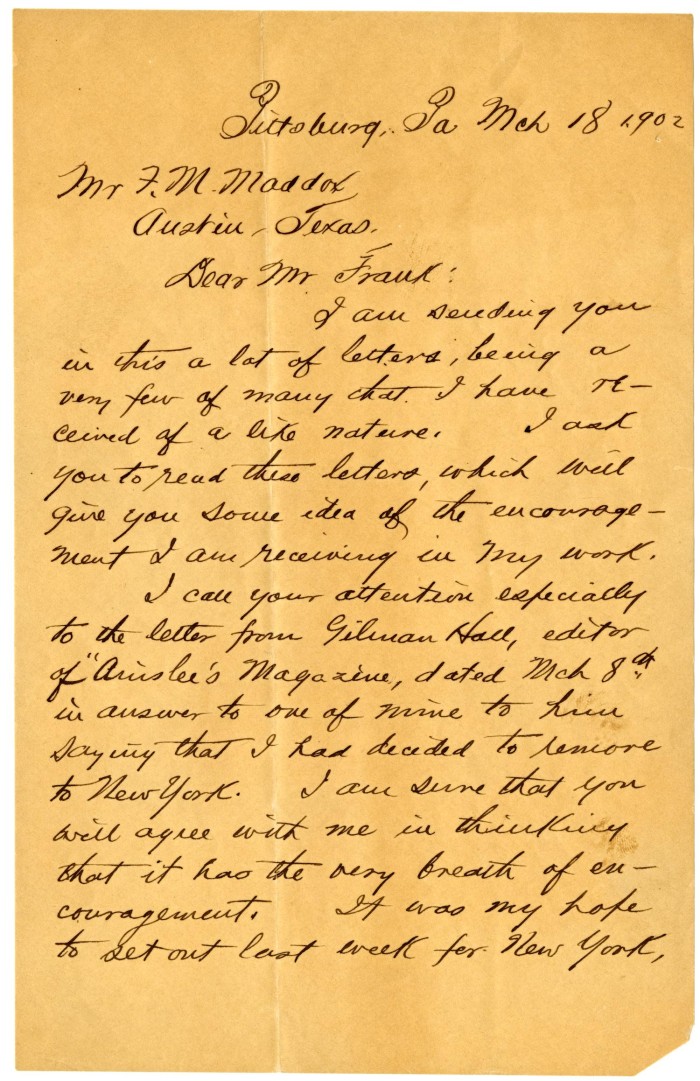 Pittsburg, Pa Mch 18 1902
Mr F. M. Maddox,
Austin, Texas.
Dear Mr Frank:
I am sending you
in this a lot of letters, being a
very few of many that I have re-
ceived of a like nature. I ask
you to read these letters, which will
give you some idea of the encourage-
ment I am receiving in my work.
I call your attention especially
to the letter from Gilman Hall, editor
of "Ainslee's Magazine, dated Mch 8th
in answer to one of mine to him
saying that I had decided to remove
to New York. I am sure that you
will agree with me in thinking
that it has the very breath of en-
couragement. It was my hope
to set out last week for New York,